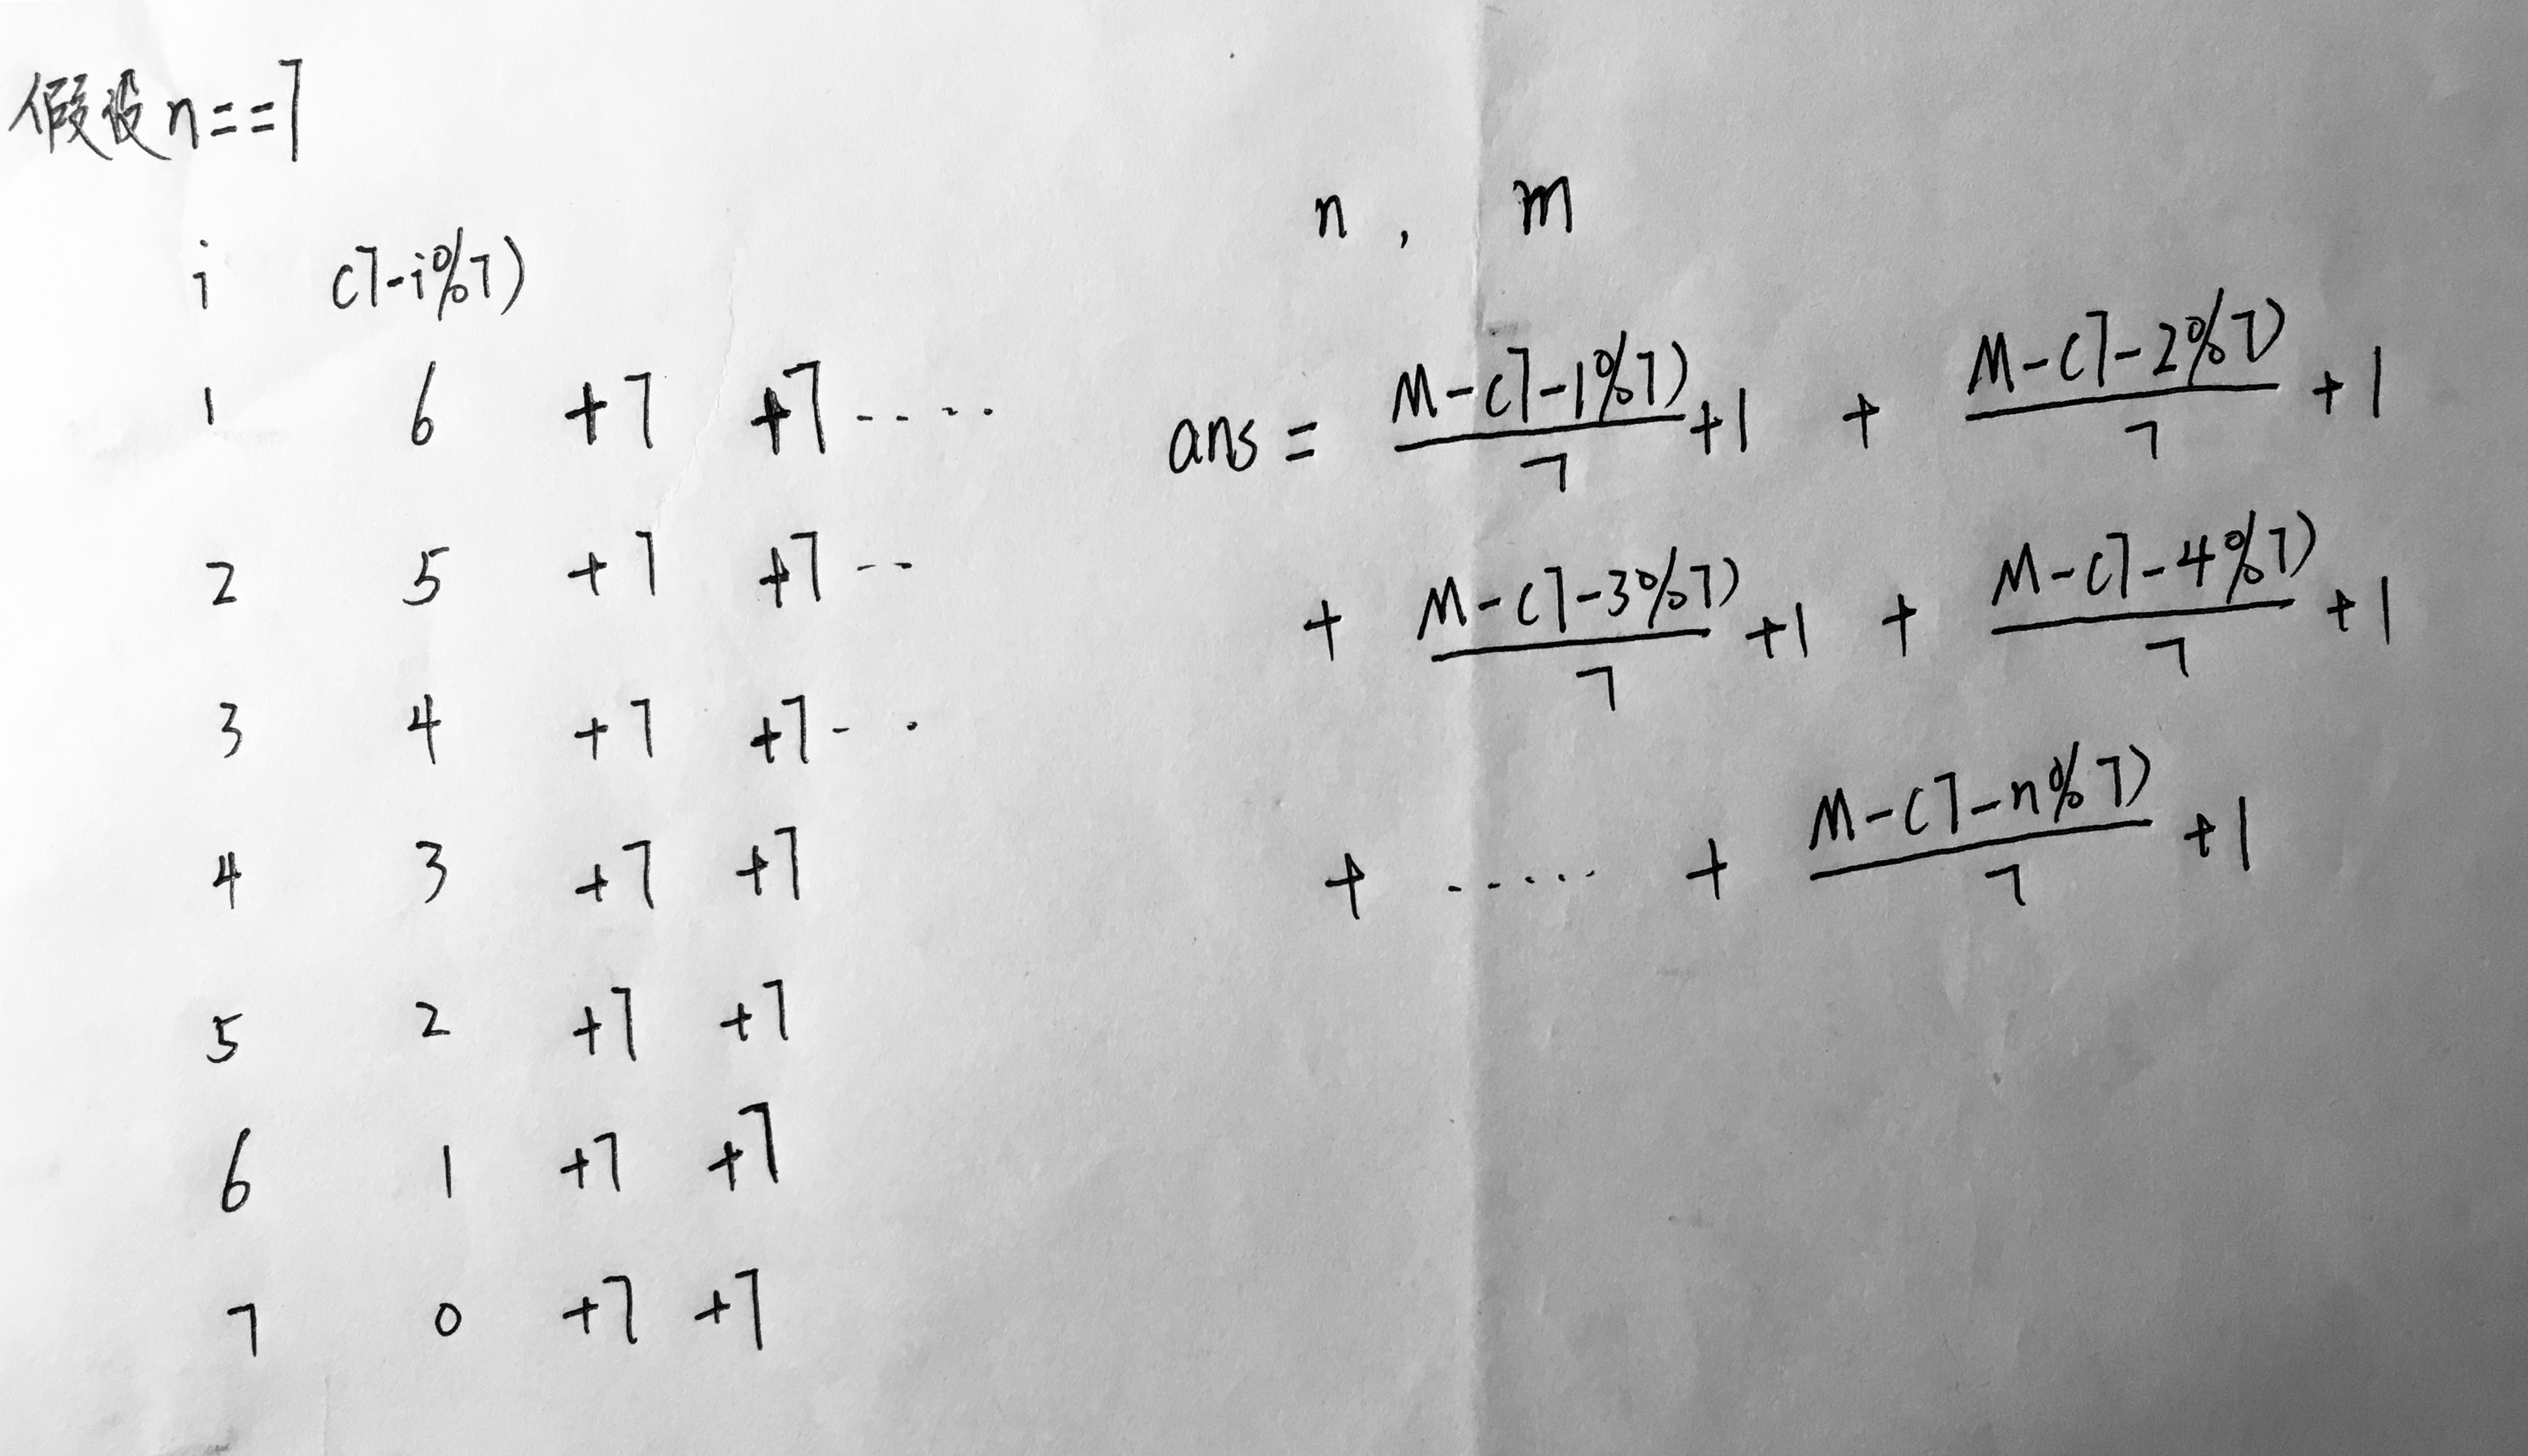 假设n==7
i (7-i%7)
1 6 +7 +7 .....
2 5 +7 +7 --
3 4 +7 +7 - .
4 3 +7 +7
5 2 +7 +7
6 1 +7 +7
7 0 +7 +7
n , m
ans = \frac{M-(7-1%7)}{7}+1 + \frac{M-(7-2%7)}{7}+1
+ \frac{M-(7-3%7)}{7}+1 + \frac{M-(7-4%7)}{7}+1
+ ..... + \frac{M-(7-n%7)}{7}+1